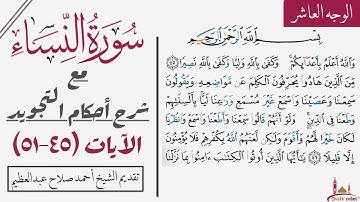 الوجه العاشر
سُورَةُ النِّسَاءِ
مع
شرح أحكام التجويد
الآيات (٤٥-٥١)
تقديم الشيخ أحمد صلاح عبدالعظيم
بِسْمِ اللَّهِ الرَّحْمَٰنِ الرَّحِيمِ
وَاللَّهُ أَعْلَمُ بِأَعْدَائِكُمْ وَكَفَىٰ بِاللَّهِ وَلِيًّا وَكَفَىٰ بِاللَّهِ نَصِيرًا ٤٥
مِنَ الَّذِينَ هَادُوا يُحَرِّفُونَ الْكَلِمَ عَن مَوَاضِعِهِ وَيَقُولُونَ
سَمِعْنَا وَعَصَيْنَا وَاسْمَعْ غَيْرَ مُسْمَعٍ وَرَاعِنَا لَيًّا بِأَلْسِنَتِهِمْ
وَطَعْنًا فِي الدِّينِ وَلَوْ أَنَّهُمْ قَالُوا سَمِعْنَا وَأَطَعْنَا وَاسْمَعْ وَانظُرْنَا
لَكَانَ خَيْرًا لَهُمْ وَأَقْوَمَ وَلَٰكِن لَعَنَهُمُ اللَّهُ بِكُفْرِهِمْ فَلَا يُؤْمِنُونَ
إِلَّا قَلِيلًا ٤٦ يَا أَيُّهَا الَّذِينَ أُوتُوا الْكِتَابَ ءَامِنُوا بِمَا نَزَّلْنَا